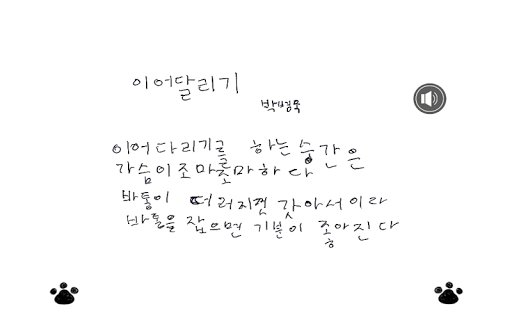 이어달리기
박병욱
이어 다리기를 하는 순간은
가슴이 조마조마 하다
바통이 떠러지껏 갓아서이라
바통을 잡으면 기분이 좋아진다